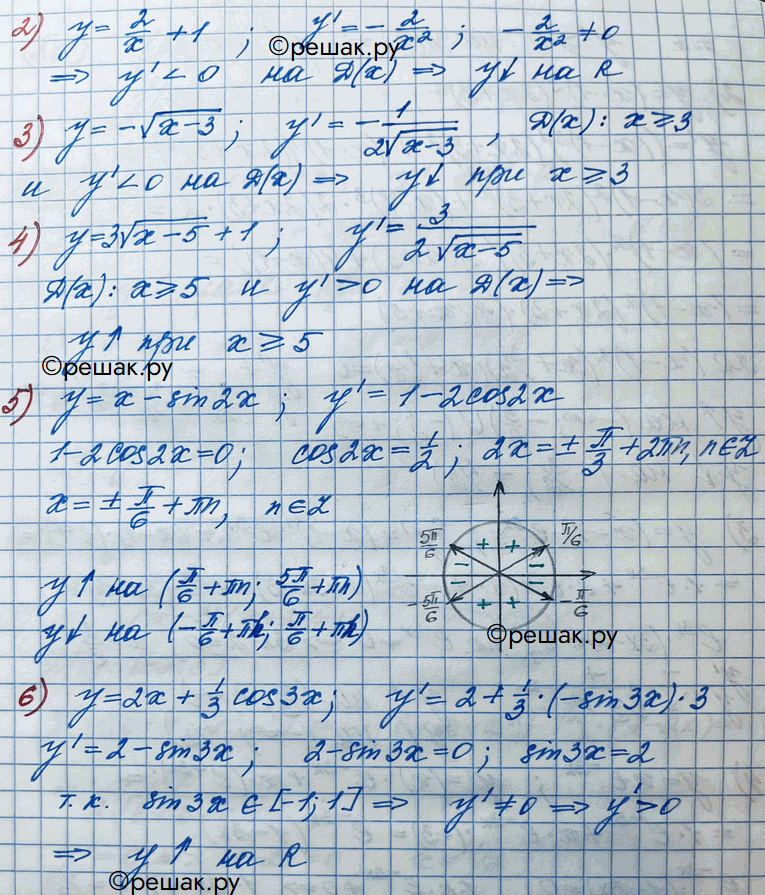 2) y = 2/x + 1 ; y' = - 2/x² ; - 2/x² ≠ 0
©решак.ру
=> y' < 0 на D(x) => y↓ на R
3) y = -√(x-3) ; y' = - 1/(2√(x-3)) , D(x): x ⩾ 3
и y' < 0 на D(x) => y↓ при x ⩾ 3
4) y = 3√(x-5) + 1 ; y' = 3/(2√(x-5))
D(x): x ⩾ 5 и y' > 0 на D(x) =>
y↑ при x ⩾ 5
©решак.ру
5) y = x - sin2x ; y' = 1 - 2cos2x
1 - 2cos2x = 0 ; cos2x = 1/2 ; 2x = ± π/3 + 2πn, n ∈ Z
x = ± π/6 + πn, n ∈ Z
5π/6 + + π/6
- -
y↑ на (π/6 + πn; 5π/6 + πn)
- 5π/6 - + + - - π/6
y↓ на (- π/6 + πk; π/6 + πk)
©решак.ру
6) y = 2x + 1/3 cos3x ; y' = 2 + 1/3 · (-sin3x) · 3
y' = 2 - sin3x ; 2 - sin3x = 0 ; sin3x = 2
т.к. sin3x ∈ [-1; 1] => y' ≠ 0 => y' > 0
=> y↑ на R
©решак.ру